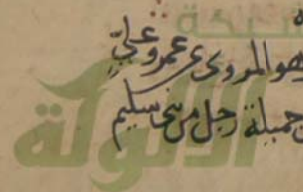 شبكة
هو المروي عن عمرو وعلي
جميلة رجل من بني سليم
الألوكة